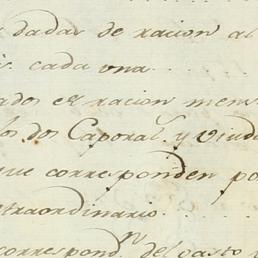 dadas de racion al
cada una
ados en racion mens
los dos Caporal. y Viud
que corresponden po
traordinario
correspond.n del gasto